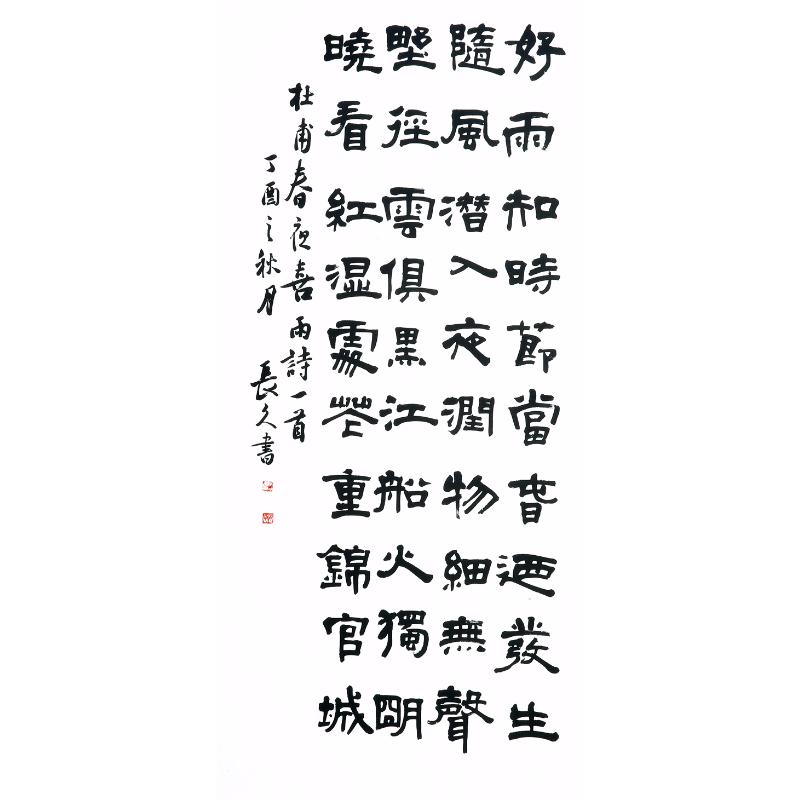 好雨知時節當春迺發生
隨風潛入夜潤物細無聲
野徑雲俱黑江船火獨明
曉看紅濕處花重錦官城
杜甫春夜喜雨詩一首
丁酉之秋月
長久書